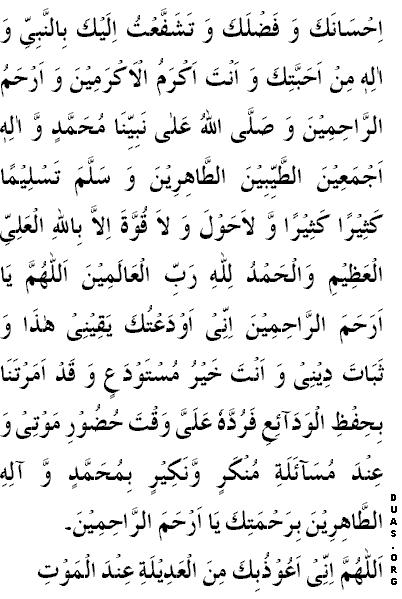 اِحْسَانَكَ وَ فَضْلَكَ وَ تَشَفَّعْتُ اِلَيْكَ بِالنَّبِيِّ وَ
اٰلِهٖ مِنْ اَحَبَّتِكَ وَ اَنْتَ اَكْرَمُ الْاَكْرَمِيْنَ وَ اَرْحَمُ
الرَّاحِمِيْنَ وَ صَلَّى اللهُ عَلٰى نَبِيِّنَا مُحَمَّدٍ وَّ اٰلِهٖ
اَجْمَعِيْنَ الطَّيِّبِيْنَ الطَّاهِرِيْنَ وَ سَلَّمَ تَسْلِيْمًا
كَثِيْرًا كَثِيْرًا وَّ لاَحَوْلَ وَ لاَ قُوَّةَ اِلاَّ بِاللهِ الْعَلِيِّ
الْعَظِيْمِ وَالْحَمْدُ لِلّٰهِ رَبِّ الْعَالَمِيْنَ اَللّٰهُمَّ يَا
اَرْحَمَ الرَّاحِمِيْنَ اِنِّيْ اَوْدَعْتُكَ يَقِيْنِيْ هٰذَا وَ
ثَبَاتَ دِيْنِيْ وَ اَنْتَ خَيْرُ مُسْتَوْدَعٍ وَ قَدْ اَمَرْتَنَا
بِحِفْظِ الْوَدَآئِعِ فَرُدَّهٗ عَلَيَّ وَقْتَ حُضُوْرِ مَوْتِيْ وَ
عِنْدَ مُسَآئَلَةِ مُنْكَرٍ وَّنَكِيْرٍ بِمُحَمَّدٍ وَّ آلِهِ
الطَّاهِرِيْنَ بِرَحْمَتِكَ يَا اَرْحَمَ الرَّاحِمِيْنَ۔
اَللّٰهُمَّ اِنِّيْ اَعُوْذُبِكَ مِنَ الْعَدِيْلَةِ عِنْدَ الْمَوْتِ
DUAS.ORG